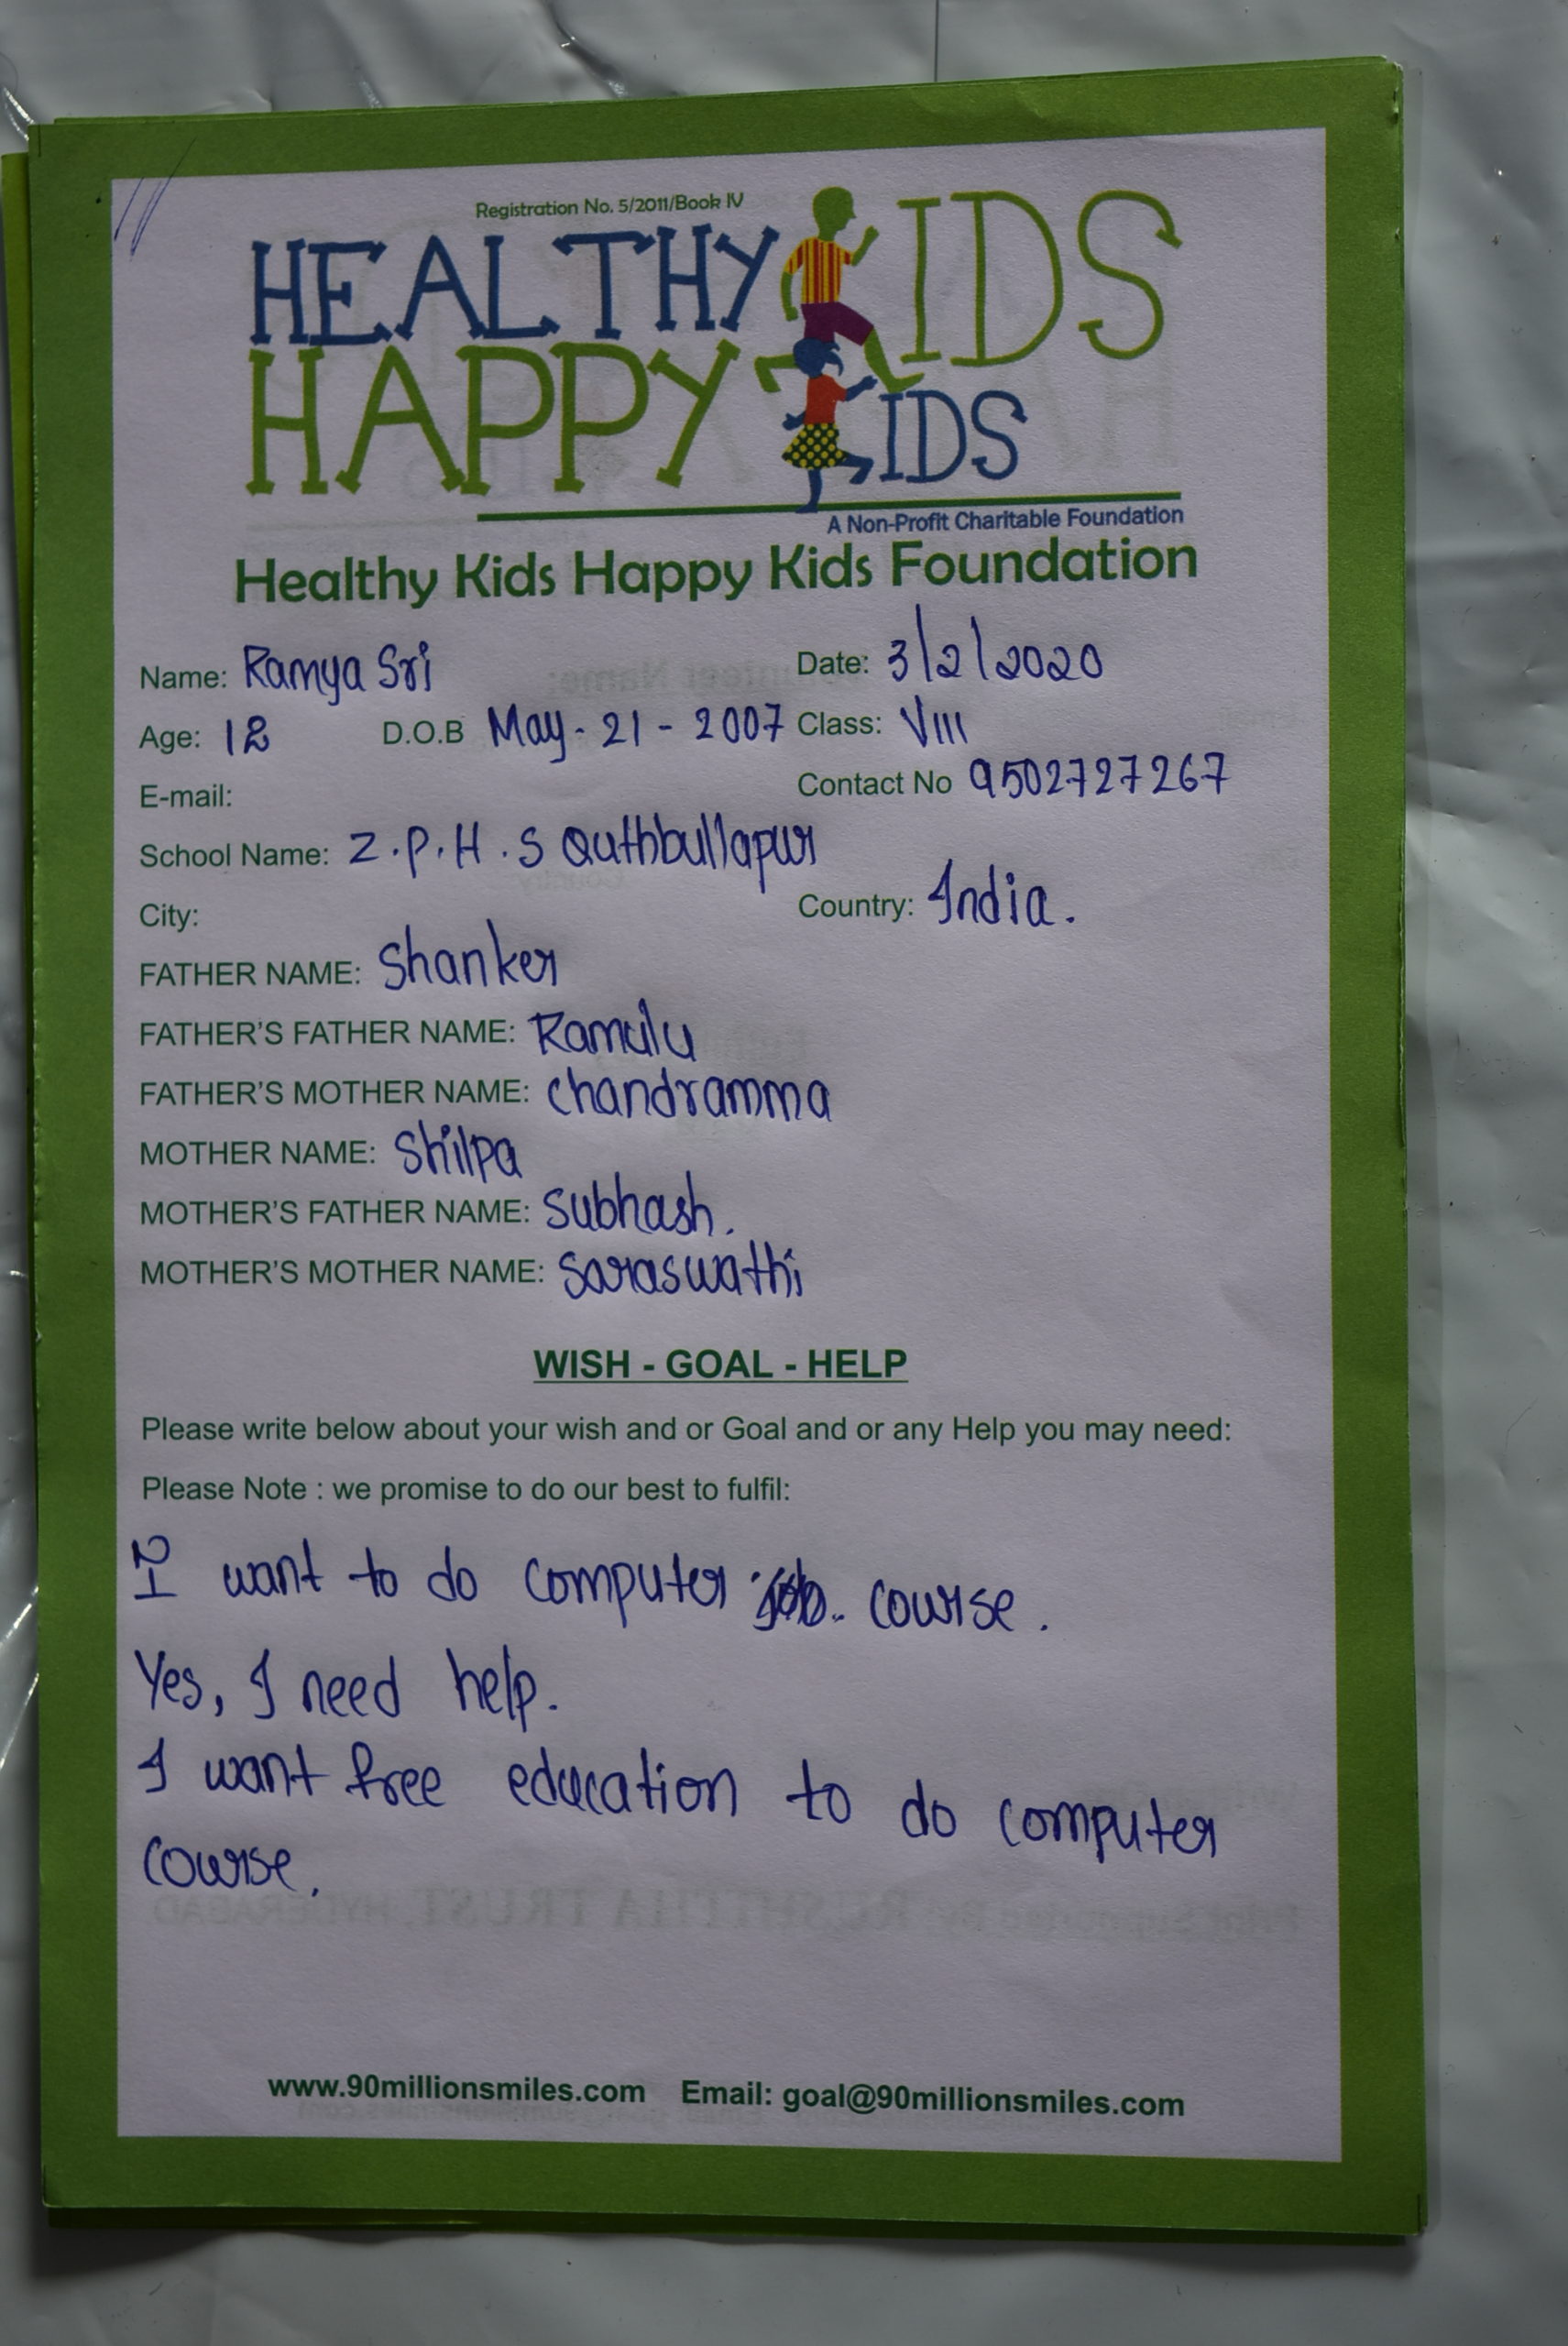 Registration No. 5/2011/Book IV
HEALTHY KIDS
HAPPY KIDS
A Non-Profit Charitable Foundation
Healthy Kids Happy Kids Foundation
Name: Ramya Sri Date: 3/2/2020
Age: 12 D.O.B May - 21 - 2007 Class: VIII
E-mail: Contact No 9502727267
School Name: Z.P.H.S Quthbullapur
City: Country: India.
FATHER NAME: Shanker
FATHER'S FATHER NAME: Ramulu
FATHER'S MOTHER NAME: Chandramma
MOTHER NAME: Shilpa
MOTHER'S FATHER NAME: Subhash.
MOTHER'S MOTHER NAME: Saraswathi
WISH - GOAL - HELP
Please write below about your wish and or Goal and or any Help you may need:
Please Note : we promise to do our best to fulfil:
I want to do computer course.
Yes, I need help.
I want free education to do computer
course.
www.90millionsmiles.com Email: goal@90millionsmiles.com